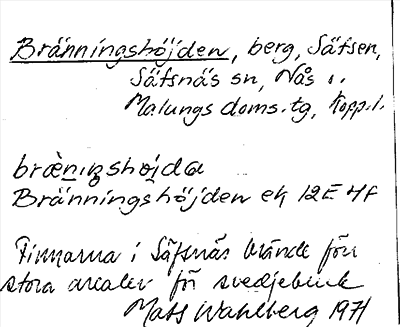 Bränningshöjden, berg, Säfsen,
Säfsnäs sn, Nås
Malungs doms.tg, Kopp.l.
bræ̀nɩŋshøjda
Bränningshöjden ek 12E 4f
Finnarna i Säfsnäs brände förr
stora arealer för svedjebruk
Mats Wahlberg 1971